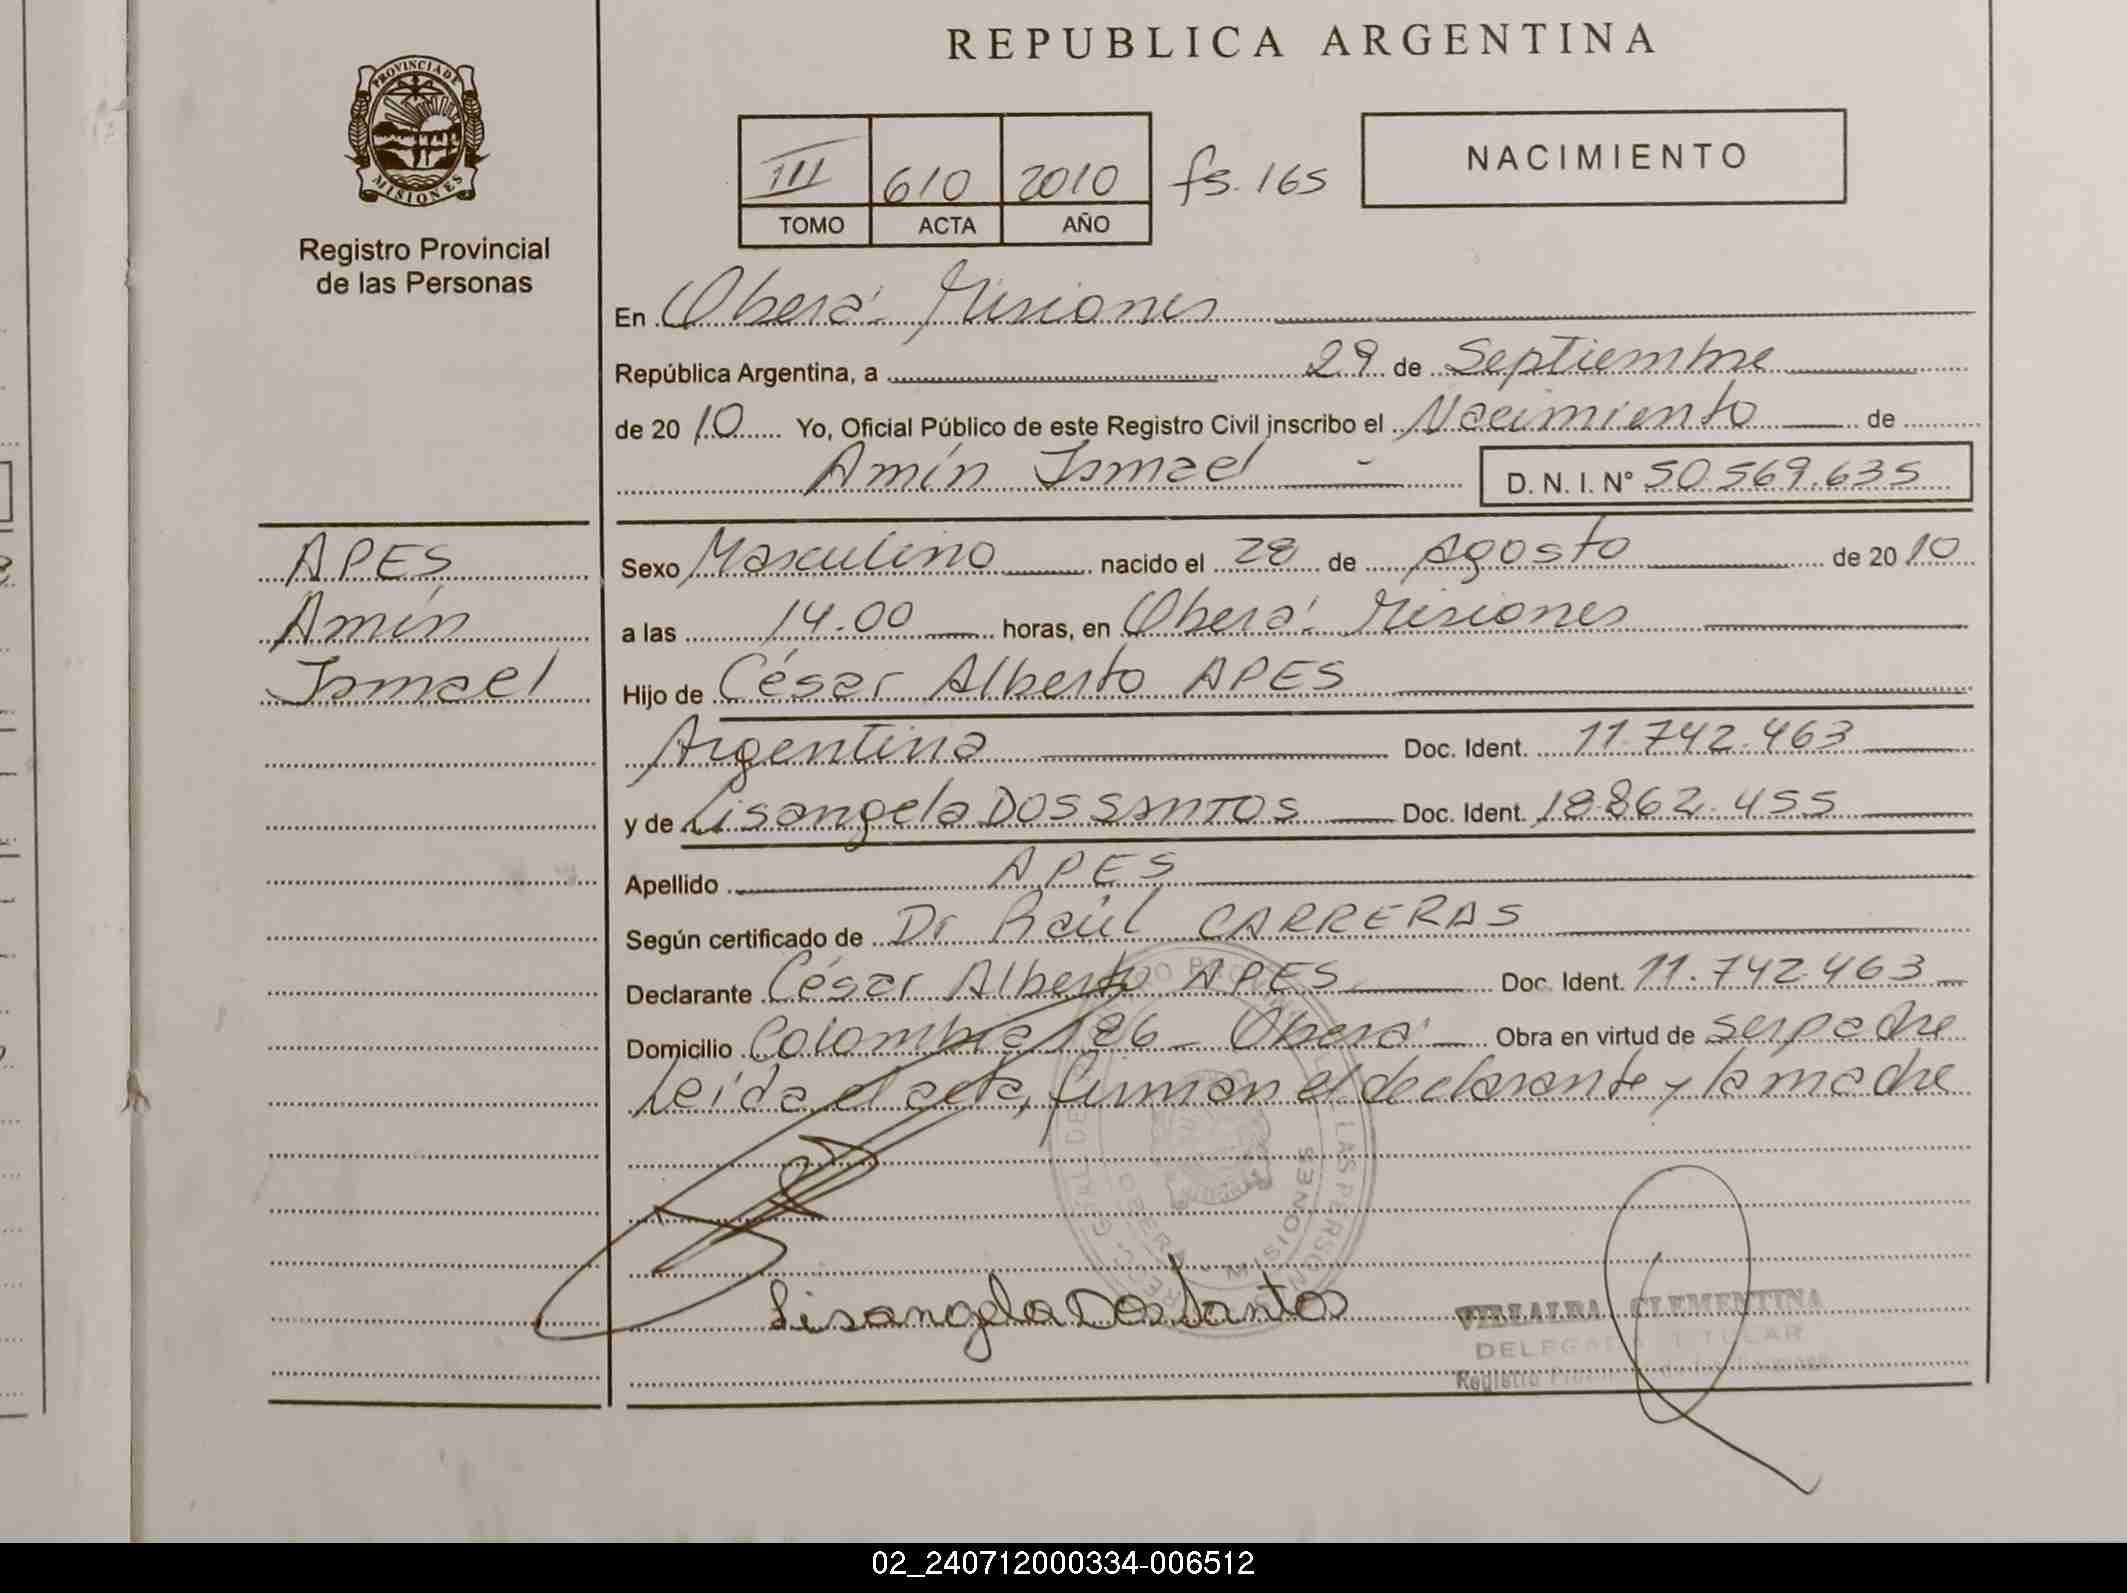 REPUBLICA ARGENTINA
PROVINCIA DE
MISIONES
Registro Provincial
de las Personas
III 610 2010 fs. 165
TOMO ACTA AÑO
NACIMIENTO
En Oberá. Misiones
República Argentina, a 29 de Septiembre
de 2010 Yo, Oficial Público de este Registro Civil inscribo el Nacimiento de
Amín Ismael D. N. I. N° 50.569.635
APES
Amín
Ismael
Sexo Masculino nacido el 28 de Agosto de 2010
a las 14.00 horas, en Oberá. Misiones
Hijo de César Alberto APES
Argentina Doc. Ident. 11.742.463
y de Lisangela DOS SANTOS Doc. Ident. 18.862.455
Apellido APES
Según certificado de Dr Raúl CARRERAS
Declarante César Alberto APES Doc. Ident. 11.742.463
Domicilio Colombia 186 - Oberá Obra en virtud de ser padre
Leída el acta, firman el declarante y la madre
LAS PERSONAS
OBERA - MISIONES
Lisangela Dos Santos
VILLALBA CLEMENTINA
DELEGADA TITULAR
Registro
02_240712000334-006512